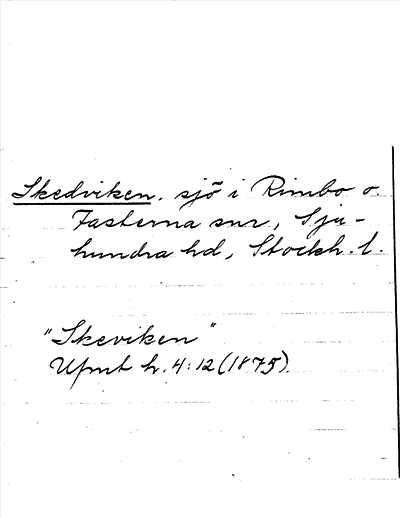 Skedviken. sjö i Rimbo o.
Fasterna snr, Sju-
hundra hd, Stockh. l.
"Skeviken"
Ufmt h. 4:12 (1875).